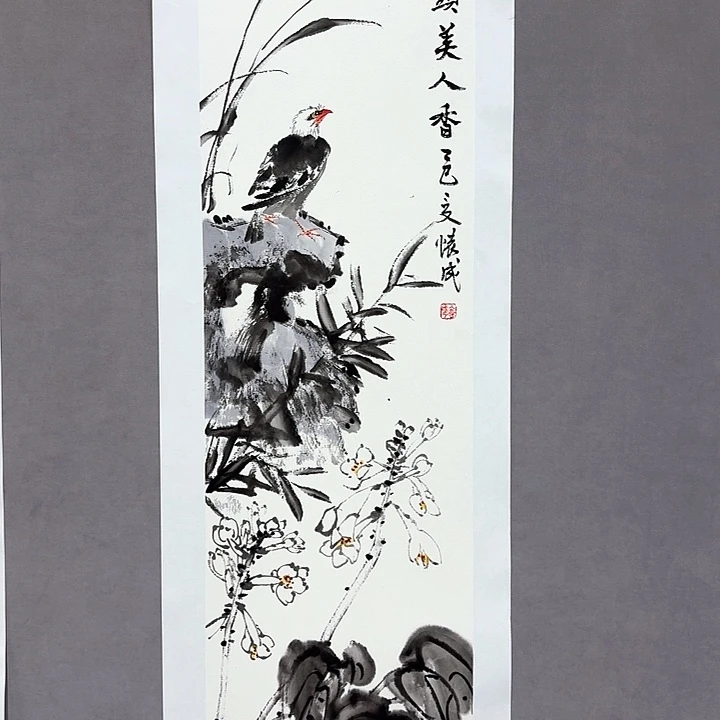 美人香己亥懷成